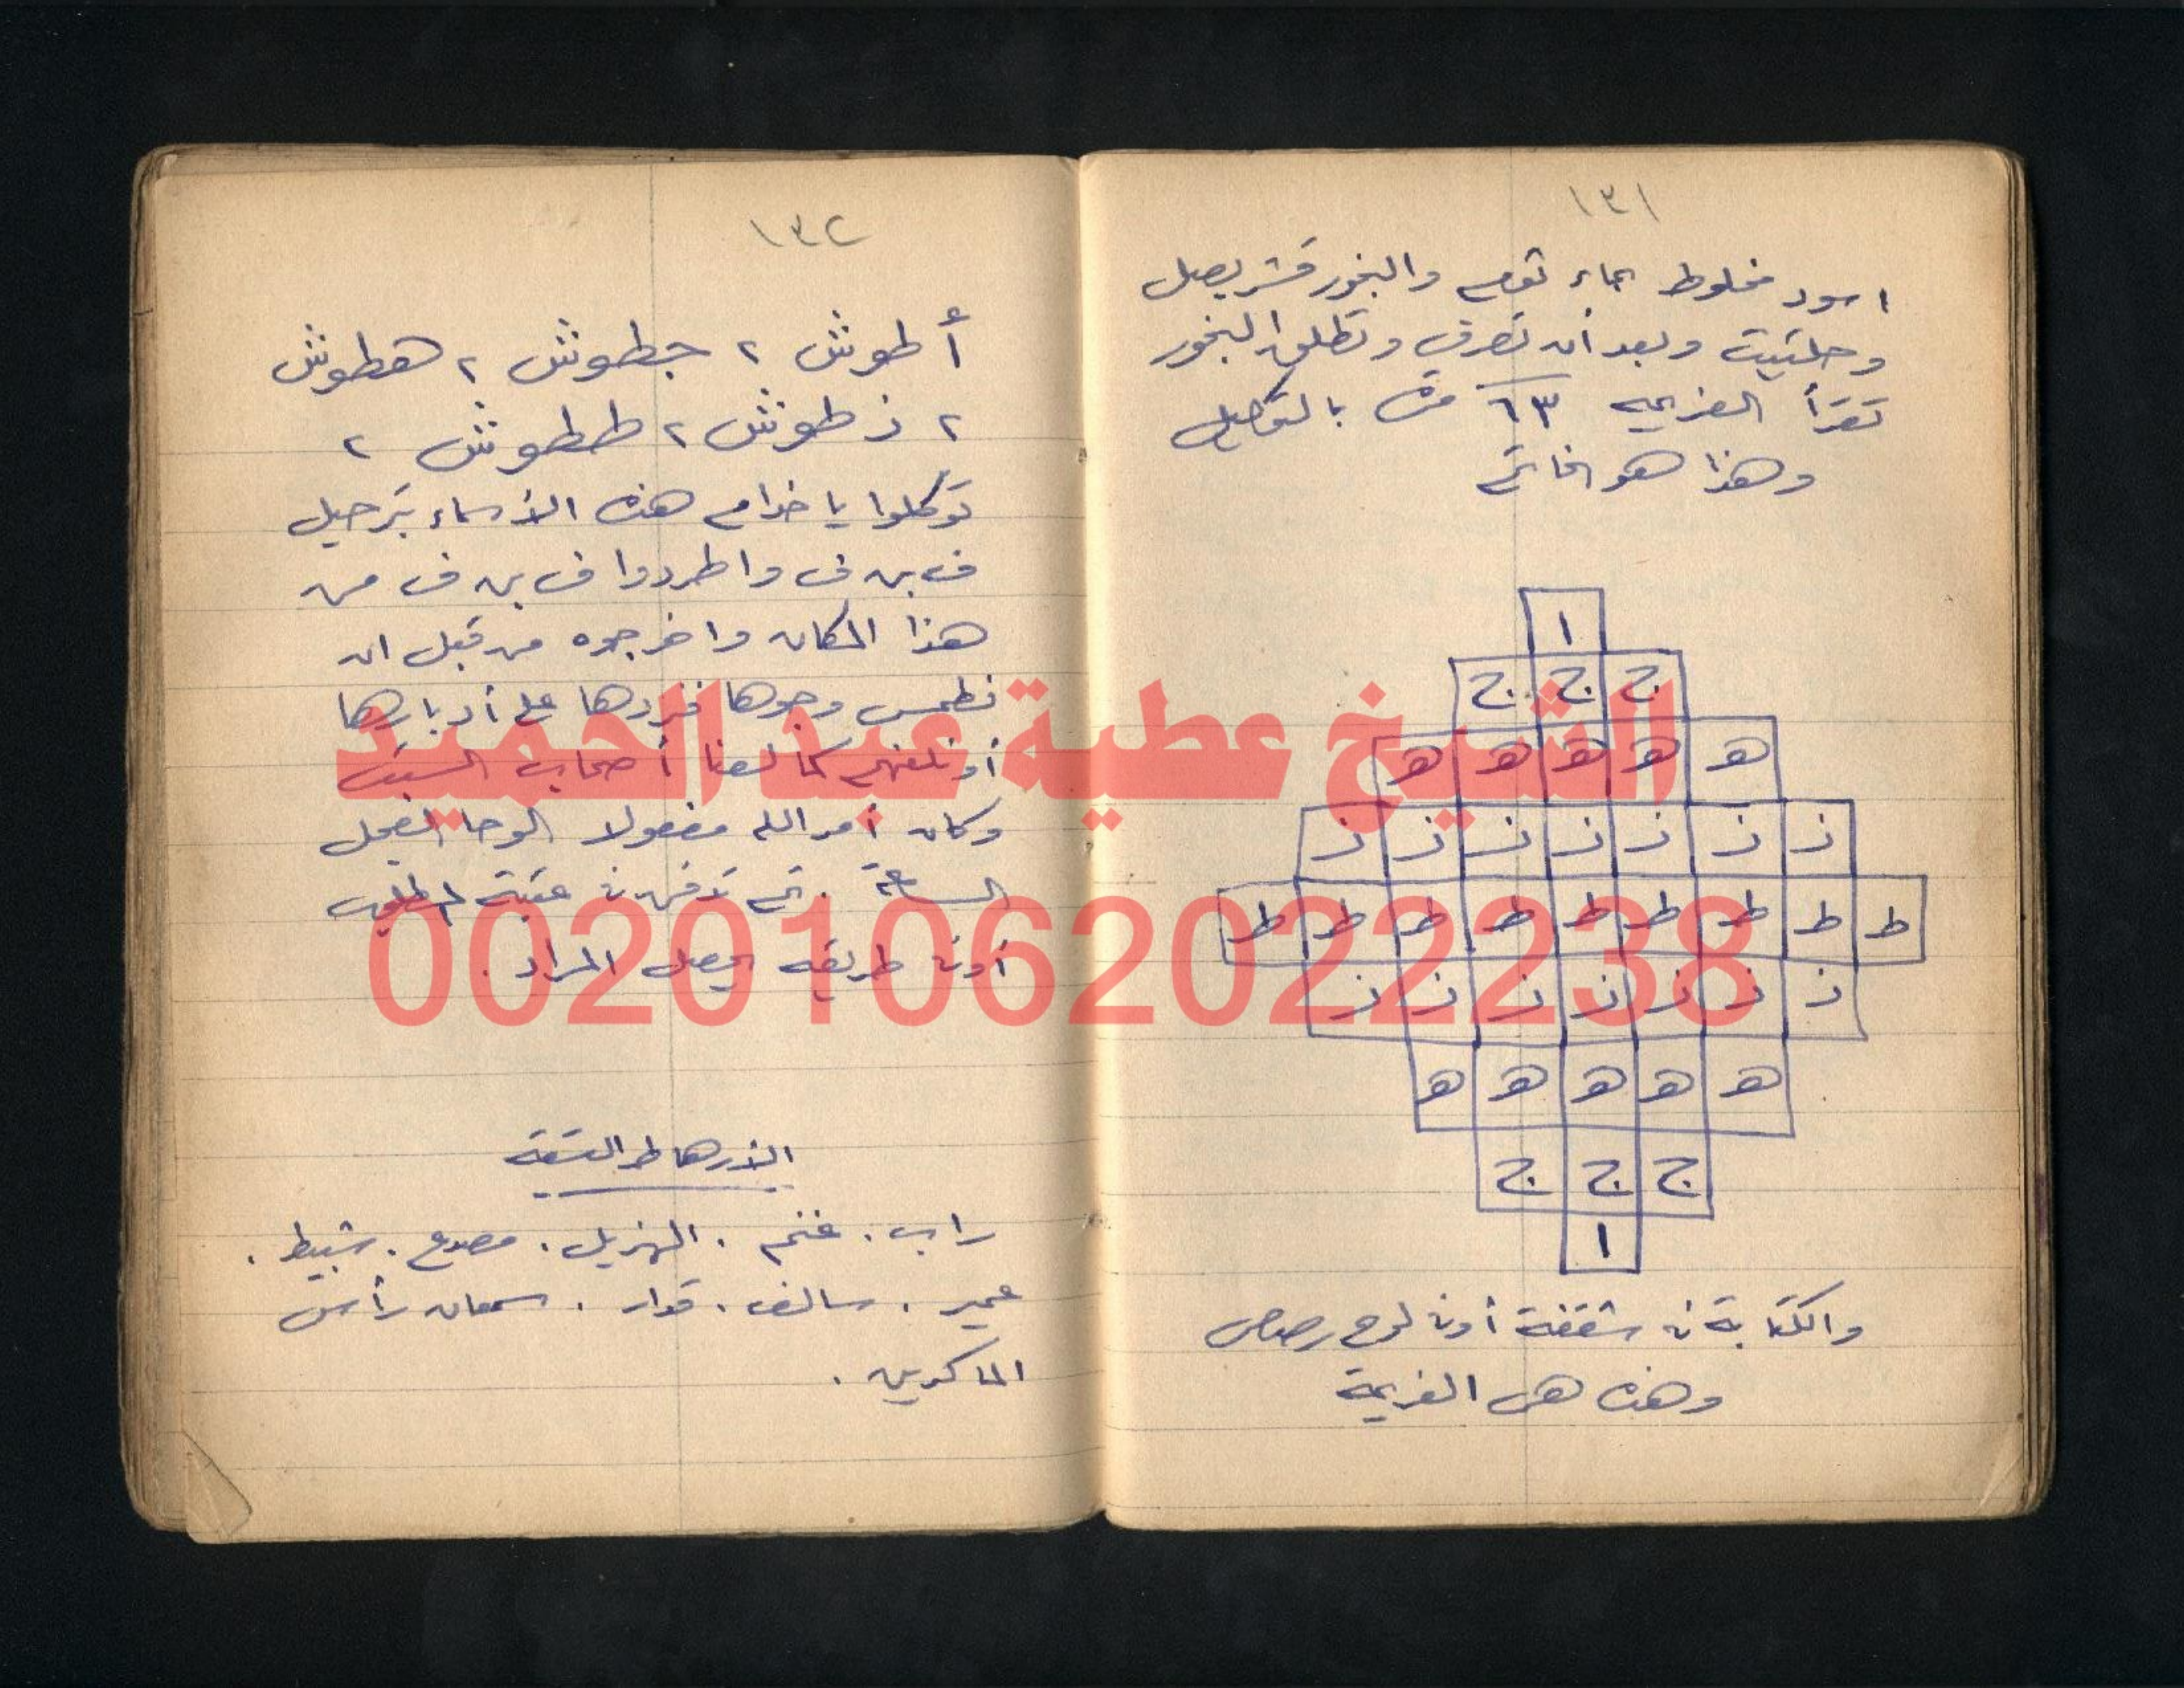 ١٣١
اسود مخلوط بماء ثوم والبخور قشر بصل
وحلتيت وبعد أن تعرق وتطلق البخور
تقرأ العزيمه ٦٣ مرة بالتوكيل
وهذا هو الخاتم
ا
ج ج ج
ه ه ه ه ه
ز ز ز ز ز ز ز
ط ط ط ط ط ط ط ط ط
ز ز ز ز ز ز ز
ه ه ه ه ه
ج ج ج
ا
والكتابة فى شقفة أو فى لوح رصاص
وهذه هى العزيمة
١٣٢
أطوش ٢ جطوش ٢ هطوش
٢ زطوش ٢ ططوش ٢
توكلوا يا خدام هذه الأسماء بترحيل
ف بن ف واطردوا ف بن ف من
هذا المكان واخرجوه من قبل ان
نطمس وجوها فنردها على أدبارها
أو نلعنهم كما لعنا أصحاب السبت
وكان أمر الله مفعولا الوحا العجل
الساعة . ثم تدفن فى عتبة المطلوب
أو فى طريقه يحصل المراد .
الأرهاط التسعة
راب . غنم . الهزيل . مصدع . شبيط .
عمير . سالف . قدار . سمعان رأس
الماكرين .
الشيخ عطية عبد الحميد
00201062022238